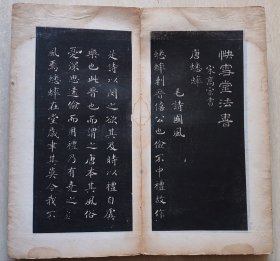 快雪堂法書
宋高宗書
唐蟋蟀
毛詩國風
蟋蟀刺晉僖公也儉不中禮故作
是詩以閔之欲其及時以禮自虞
樂也此晉也而謂之唐本其風俗
憂深思遠儉而用禮乃有堯之
風焉蟋蟀在堂歲聿其莫今我不